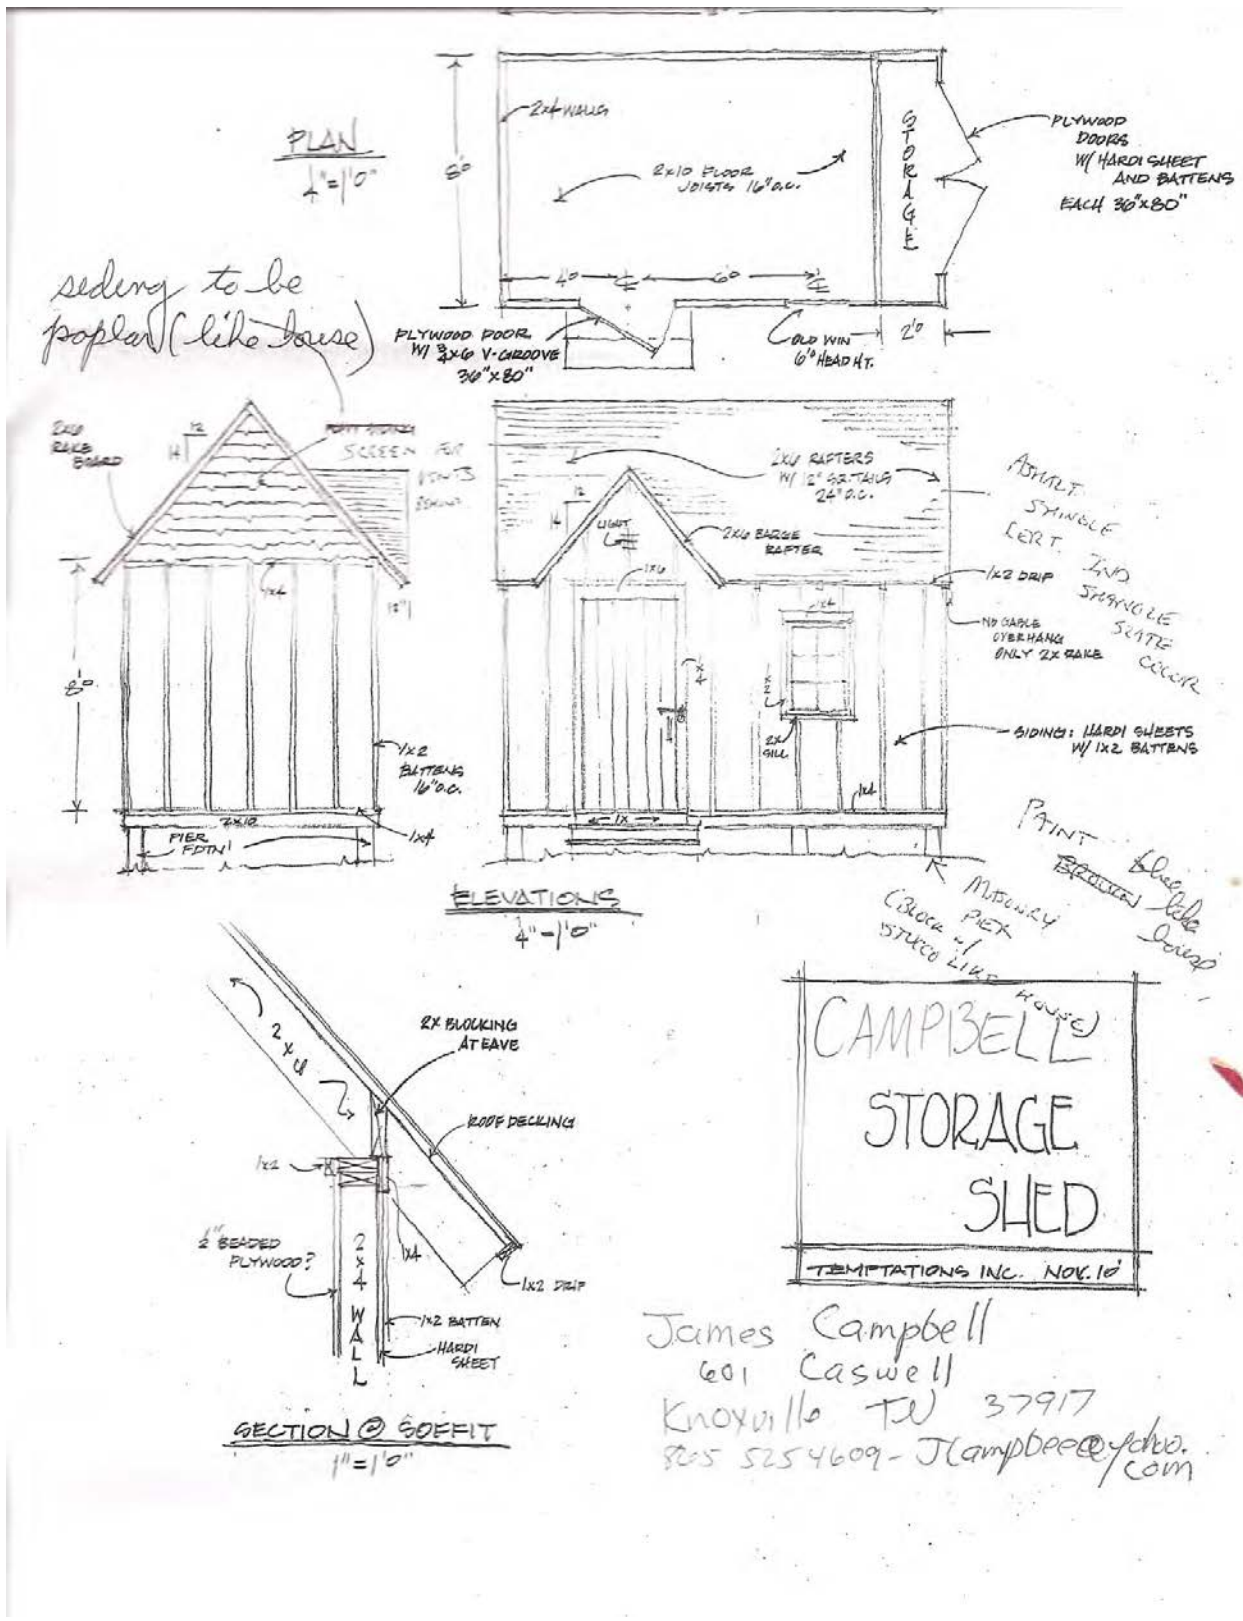 PLAN
1/4" = 1'0"
8'0"
2x4 WALLS
2x10 FLOOR
JOISTS 16" O.C.
STORAGE
PLYWOOD
DOORS
W/ HARDI SHEET
AND BATTENS
EACH 36"x80"
4'0"
6'0"
2'0"
PLYWOOD DOOR
W/ 3/4x6 V-GROOVE
36"x80"
OLD WIN
6'0" HEAD HT.
siding to be
poplar (like house)
2x6
RAKE
BOARD
12
14
SCREEN FOR
VENTS
BEHIND
1x4
12"
8'0"
1x2
BATTENS
16" O.C.
2x10
PIER
FDTN
1x4
2x6 RAFTERS
W/ 12" SQ. TAILS
24" O.C.
12
14
LIGHT
2x6 BARGE
RAFTER
1x6
1x4
1x4
1x2
2x
SILL
1x4
1x
1x2 DRIP
NO GABLE
OVERHANG
ONLY 2x RAKE
SIDING: HARDI SHEETS
W/ 1x2 BATTENS
ASPHALT
SHINGLE
CERT. IND
SHANGLE
SLATE
COLOR
PAINT
BROWN blue
like
house
MASONRY
PIER
(BLOCK w/
STUCCO LIKE HOUSE)
ELEVATIONS
1/4" = 1'0"
2x6
2x BLOCKING
AT EAVE
ROOF DECKING
1x2
1x4
1/2" BEADED
PLYWOOD?
2x4 WALL
1x2 DRIP
1x2 BATTEN
HARDI
SHEET
SECTION @ SOFFIT
1" = 1'0"
CAMPBELL
STORAGE
SHED
TEMPTATIONS INC. NOV. 10'
James Campbell
601 Caswell
Knoxville TN 37917
865 525 4609 -